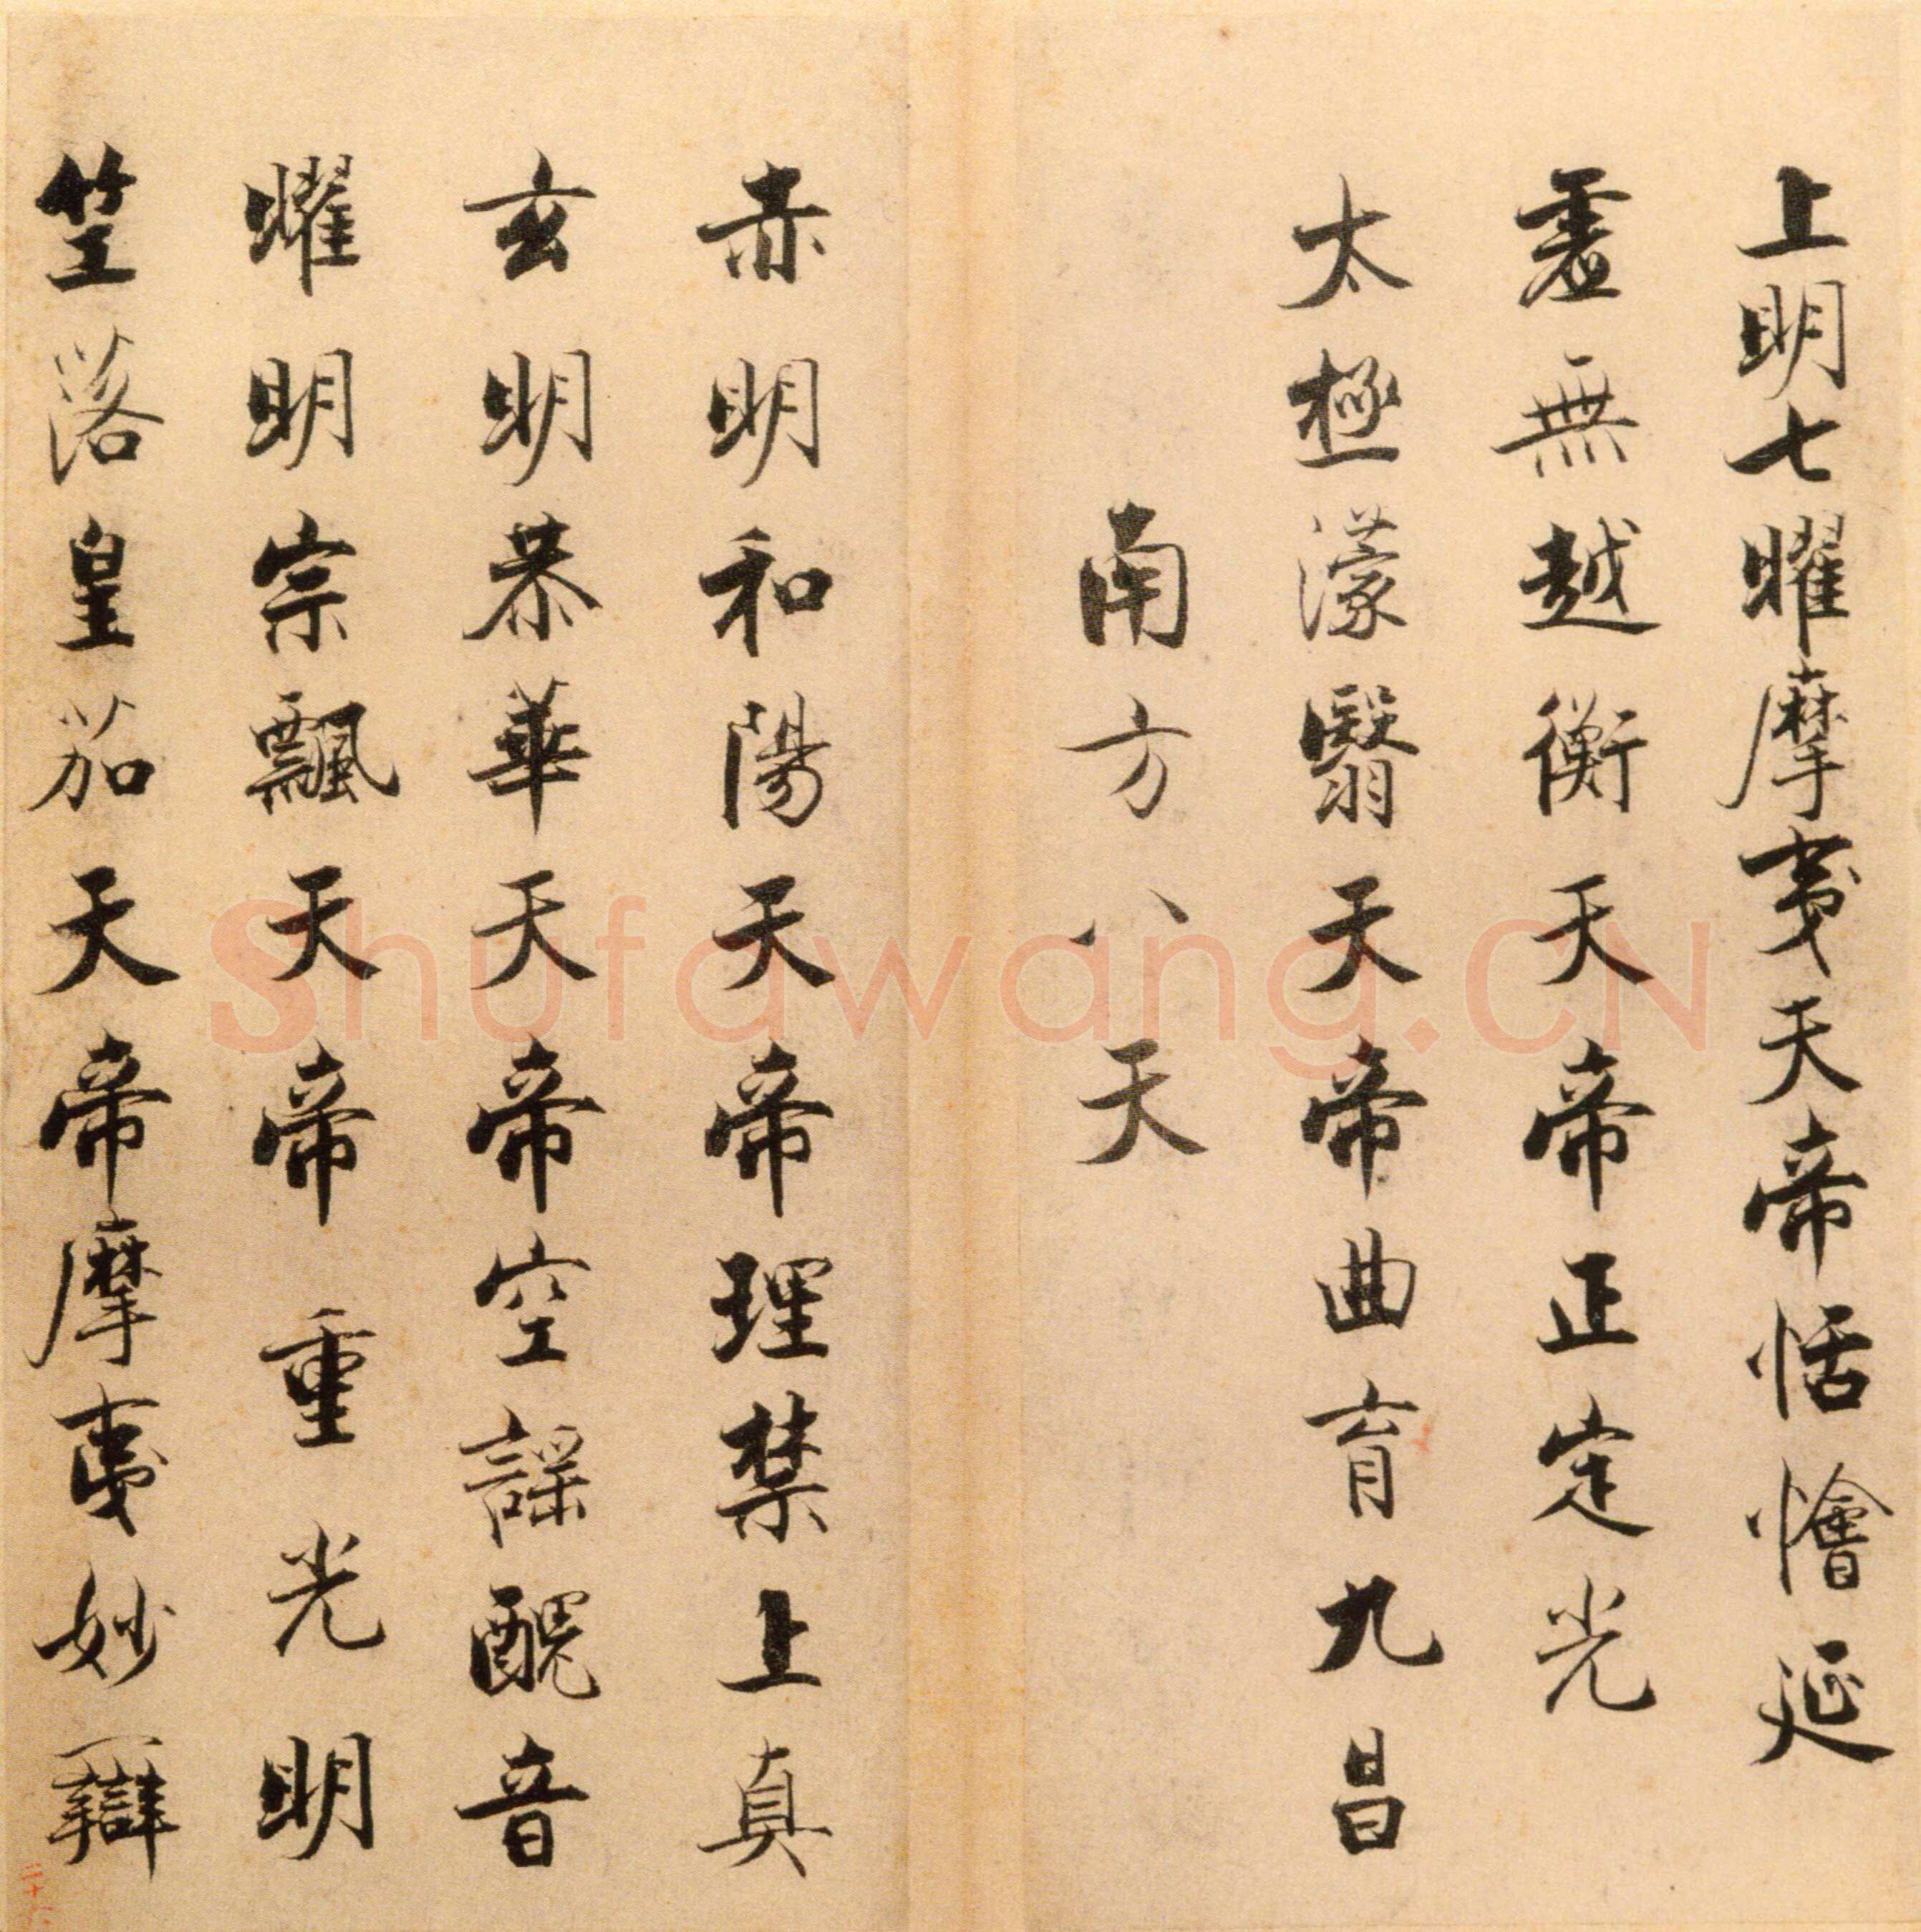 上明七曜摩夷天帝恬憺延
虛無越衡天帝正定光
太極濛翳天帝曲育九昌
南方八天
赤明和陽天帝理禁上真
玄明恭華天帝空謠醜音
曜明宗飄天帝重光明
竺落皇笳天帝摩夷妙辯
Shufawang.CN
二十六